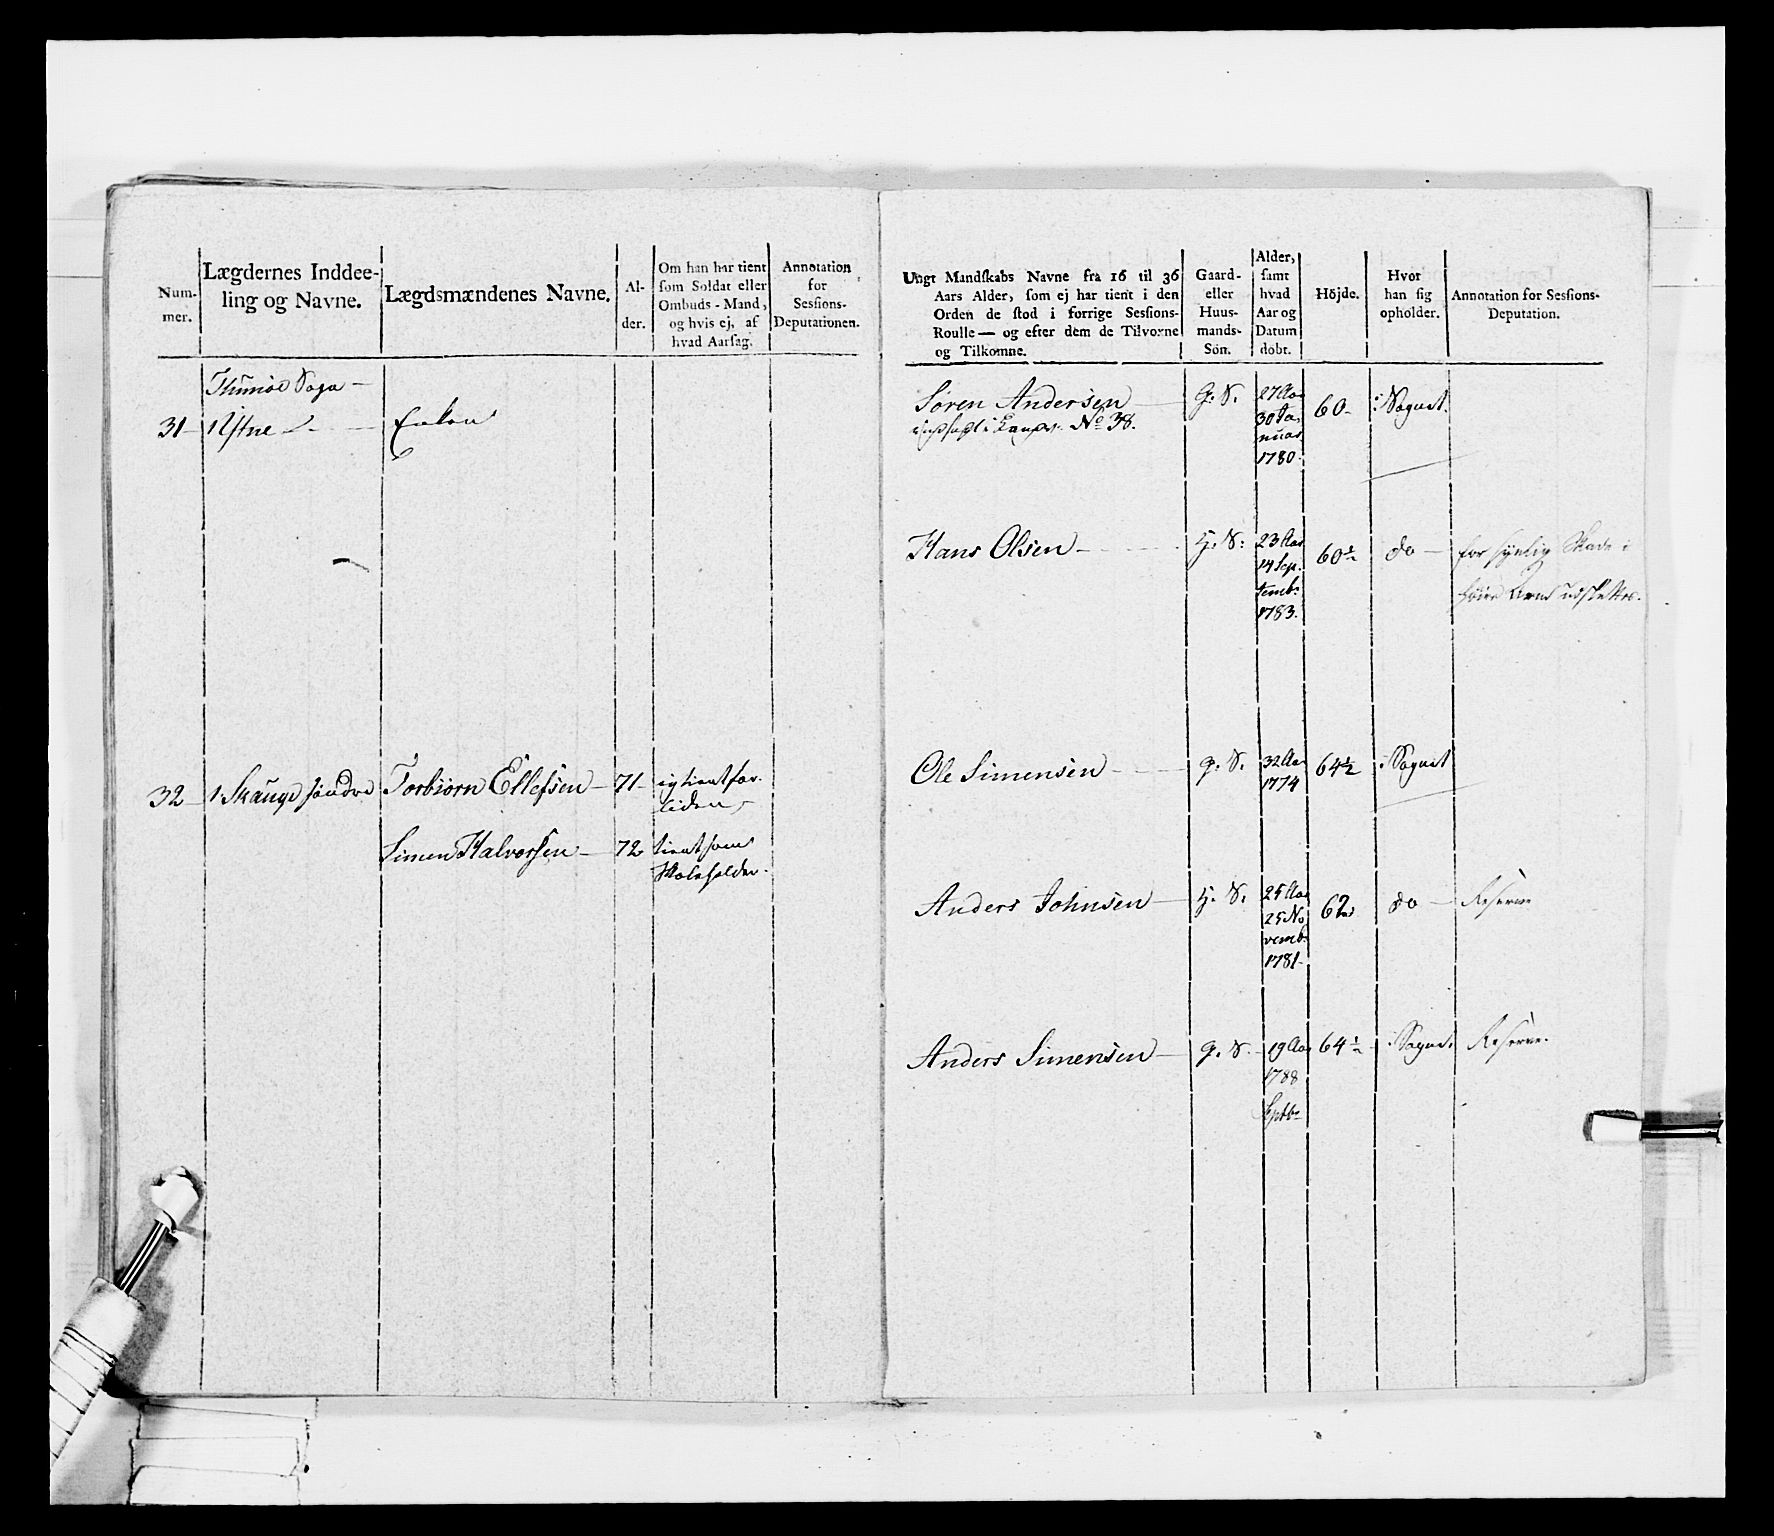 Num-
mer.
Lægdernes Inddee-
ling og Navne.
Lægdsmændenes Navne.
Al-
der.
Om han har tient
som Soldat eller
Ombuds-Mand,
og hvis ej, af
hvad Aarsag.
Annotation
for
Sessions-
Deputationen.
31 1 Ystne
Enken
32 1 Skauge søndre
Torbiorn Ellefsen 71
Simen Halvorsen 72 tient som
Skoleholder.
Ungt Mandskabs Navne fra 16 til 36
Aars Alder, som ej har tient i den
Orden de stod i forrige Sessions-
Roulle — og efter dem de Tilvoxne
og Tilkomne.
Gaard-
eller
Huus-
mands-
Søn.
Alder,
samt
hvad
Aar og
Datum
født.
Höjde.
Hvor
han sig
opholder.
Annotation for Sessions-
Deputation.
Søren Andersen G. S. 27 Aar 60 i Sognet.
No 38. 30 Ja-
nuar
1780.
Hans Olsen H. S: 23 Aar 60½ do for synlig Skade i
14 Sep- høire Arm udskättes.
temb:
1783.
Ole Simensen G. S. 32 Aar 64½ i Sognet
1774
Anders Johnsen H. S. 25 Aar 62 do Reserve
25 No
vemb:
1781.
Anders Simensen G. S. 19 Aar 64½ i Sognet Reserve.
1788
Septbr